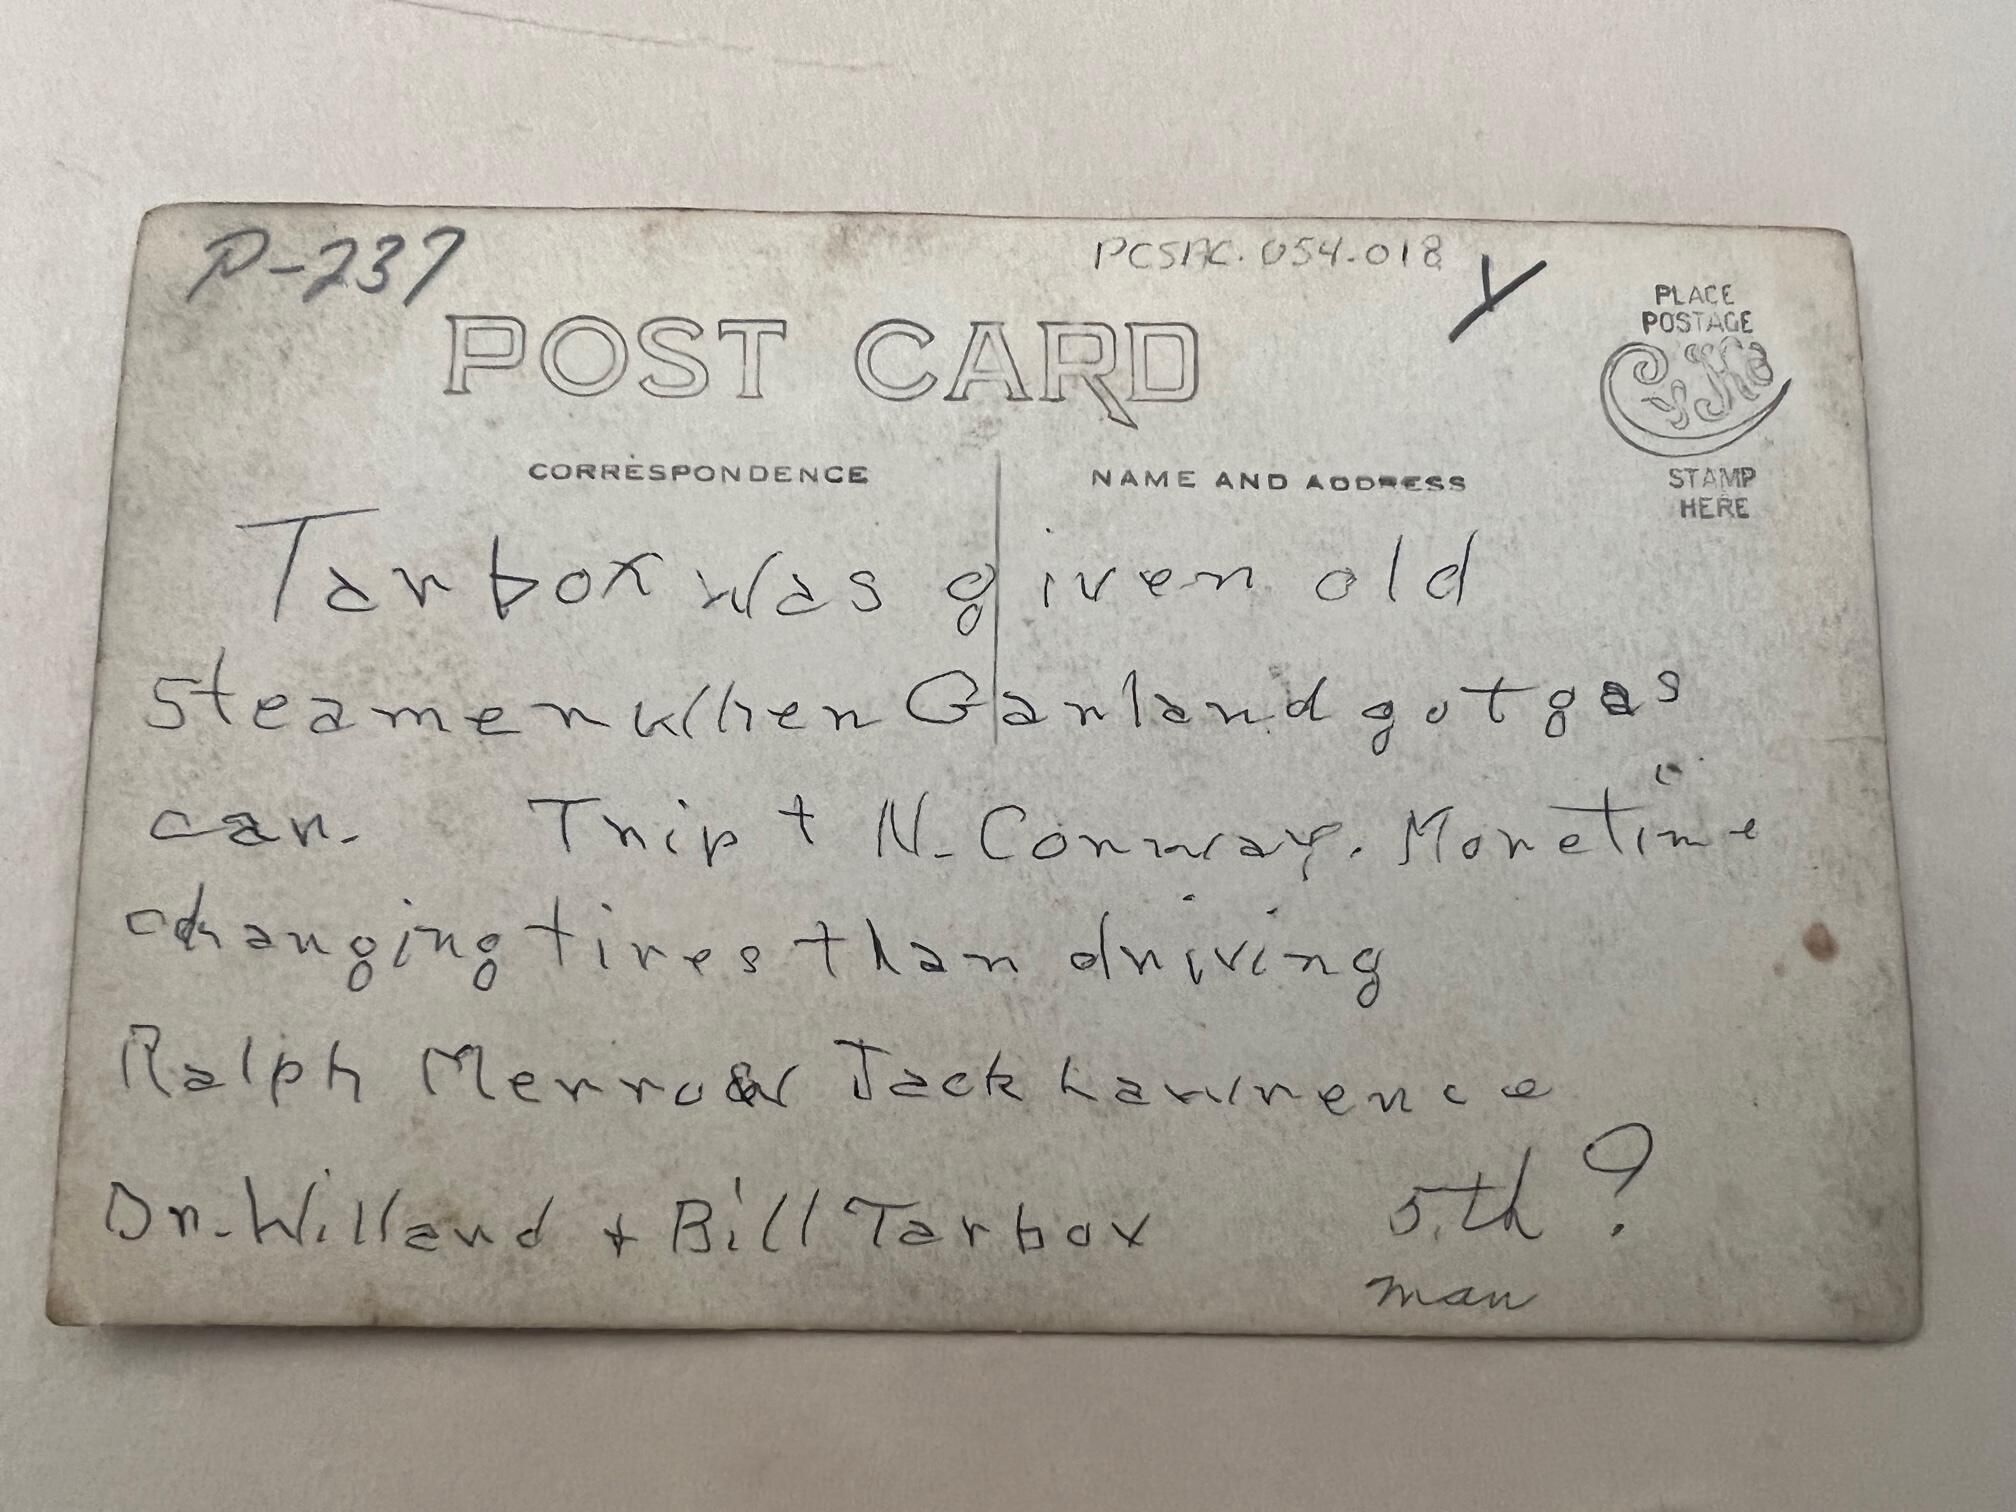 P-237
PCSAC.054.018 Y
PLACE
POSTAGE
POST CARD
CORRESPONDENCE
NAME AND ADDRESS
STAMP
HERE
Tarbox was given old
steamer when Garland got gas
car. Trip t N. Conway. More time
changing tires than driving
Ralph Merrow Jack Lawrence
Dr. Willard + Bill Tarbox 5th ?
man